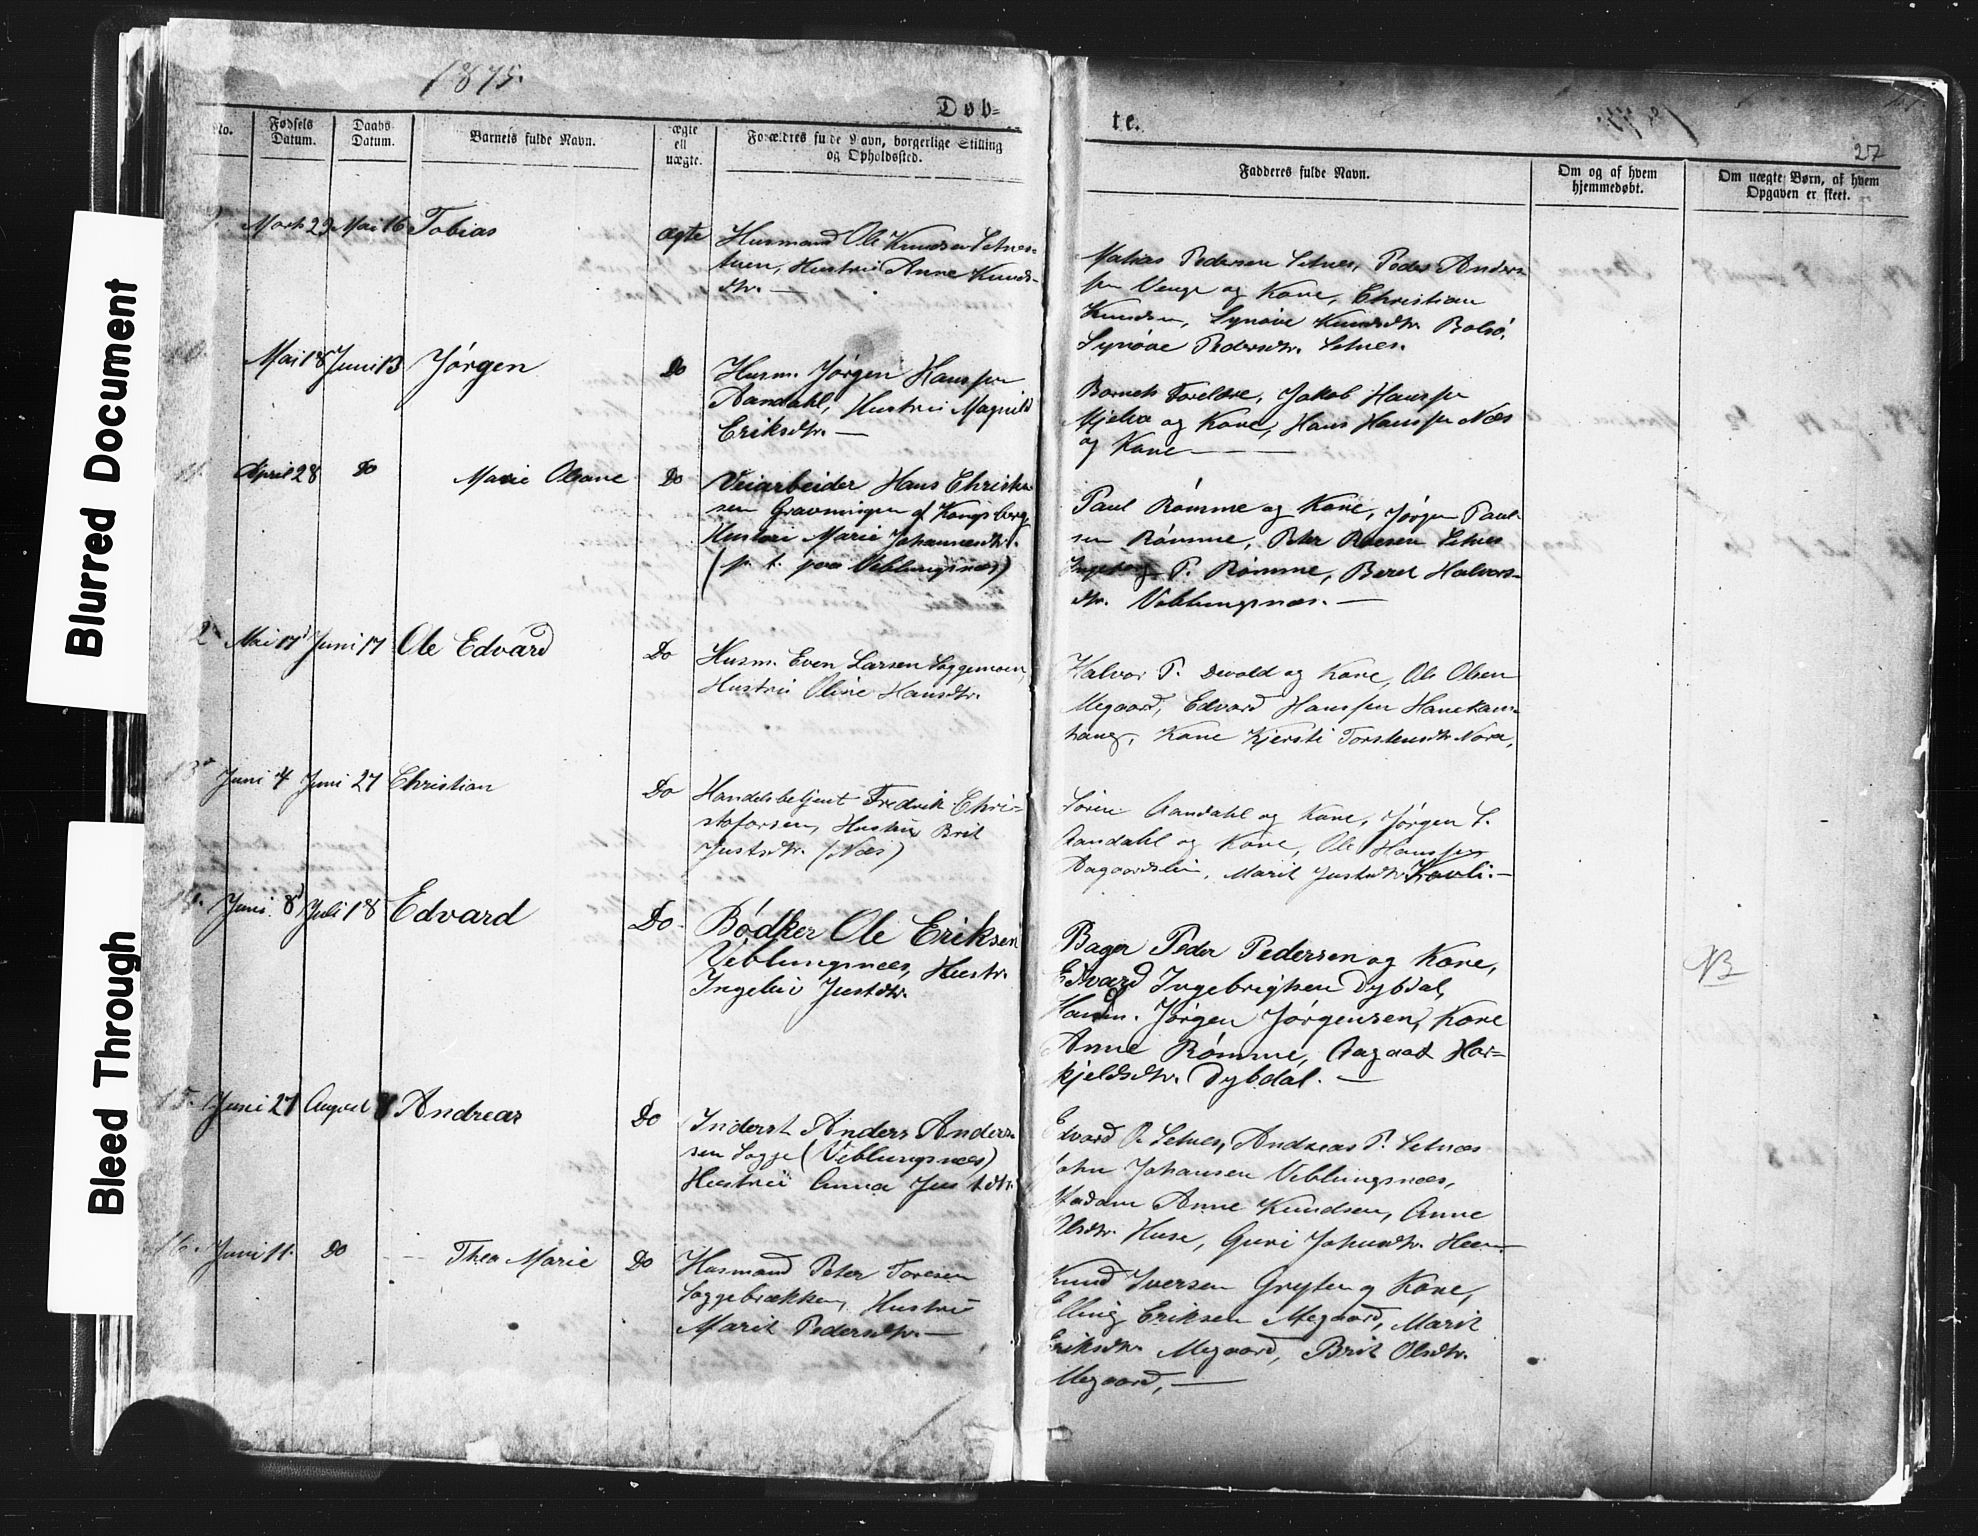 1875.
Døb-
te.
27
No.
Fødsels Datum.
Daabs Datum.
Barnets fulde Navn.
ægte ell uægte.
Forældres fulde Navn, borgerlige Stilling og Opholdssted.
Fadderes fulde Navn.
Om og af hvem hjemmedøbt.
Om uægte Børn, af hvem Opgaven er skeet.
9. Marts 29 Mai 16 Tobias ægte
Husmand Ole Knudsen Setnes-
tuen, Hustru Anne Knuds-
dtr. —
Matias Pedersen Setnes, Peder Anders-
sen Venge og Kone, Christian
Knudsen, Synøve Knudsdtr. Bolsø,
Synøve Pedersdtr. Setnes.
10. Mai 18 Juni 13 Jørgen Do
Husm. Jørgen Hanssen
Aandahl, Hustru Magnild
Eriksdtr. —
Barnets Foreldre, Jakob Hanssen
Mjelva og Kone, Hans Hanssen Næs
og Kone —
11. April 28 Do Marie Oleane Do
Veiarbeider Hans Christen-
sen Gravningen af Kongsberg
Hustru Marie Johannesdtr.
(p. t. paa Veblungsnæs)
Paul Rømme og Kone, Jørgen Paul-
sen Rømme, Peter Setnes
Ingeborg P. Rømme, Beret Halvors-
dtr. Veblungsnæs. —
12. Mai 17 Juni 17 Ole Edvard Do
Husm. Even Larsen Soggemoen,
Hustru Oline Hansdtr.
Halvor T. Devold og Kone, Ole Olsen
Megaard, Edvard Hanssen Hanekam-
haug, Kone Kjersti Torstensdtr. Nora,
13. Juni 4 Juni 27 Christian Do
Handelsbetjent Fredrik Chri-
stofersen, Hustru Brit
Justsdtr. (Næs)
Søren Aandahl og Kone, Jørgen S.
Aandahl og Kone, Ole Hanssen
Aagaardslien, Marit Justsdtr. Kavli. —
14. Juni 8 Juli 18 Edvard Do
Bødker Ole Eriksen
Veblungsnæs, Hustr.
Ingeleiv Justdtr.
Bager Peder Pedersen og Kone,
Edvard Ingebrigtsen Dybdal,
Jørgen Jørgensen, Kone
Anne Rømme, Aagaat Hor-
kjeldsdtr. Dybdal. —
NB
15. Juni 27 August 8 Andreas Do
Inderst Anders Anders-
sen Sogge (Veblungsnæs)
Hustru Anna Justsdtr.
Edvard P. Setnes, Andreas P. Setnæs
John Johansen Veblungsnæs,
Madam Anne Knudsen, Anne
Olsdtr. Huse, Guri Johnsdtr. Heen —
16. Juni 11. Do Thea Marie Do
Husmand Peter Toresen
Soggebrækken, Hustru
Marit Pedersdtr. —
Knud Iversen Gryten og Kone,
Elling Eriksen Megaard, Marit
Eriksdtr. Megaard, Brit Olsdtr.
Megaard, —
Blurred Document
Bleed Through